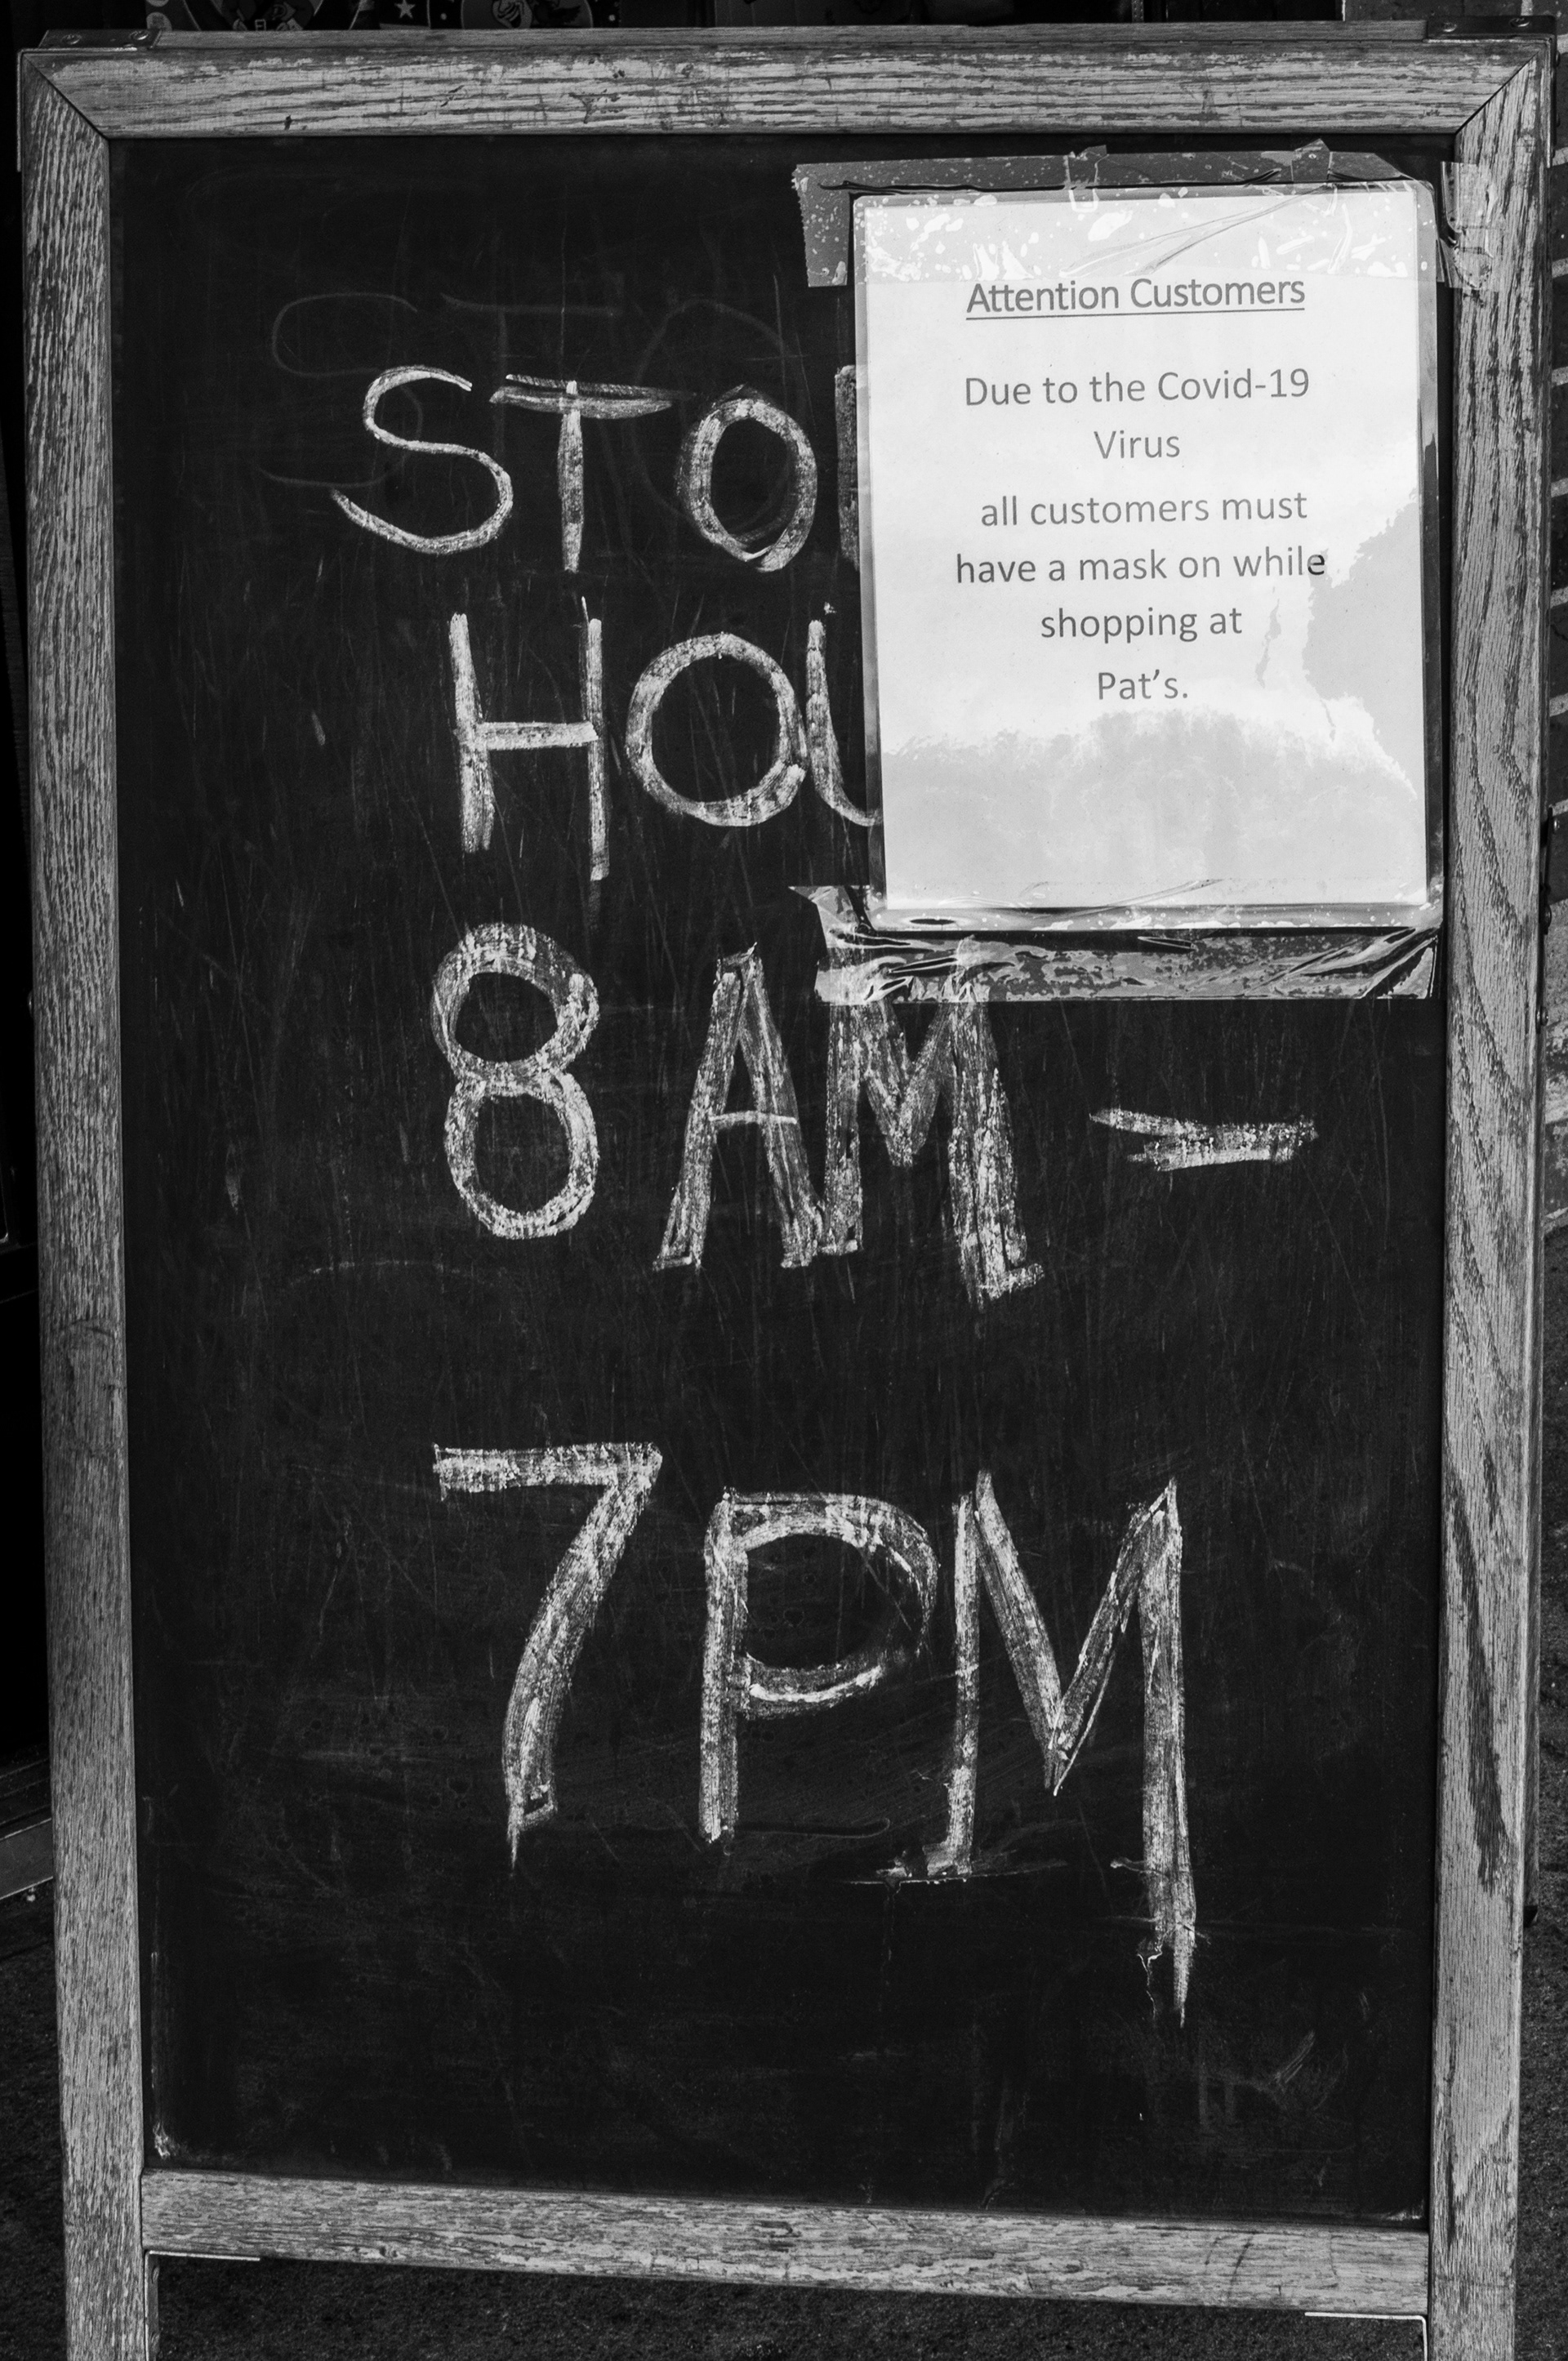 STO
HOU
8 AM -
7 PM
Attention Customers
Due to the Covid-19
Virus
all customers must
have a mask on while
shopping at
Pat's.